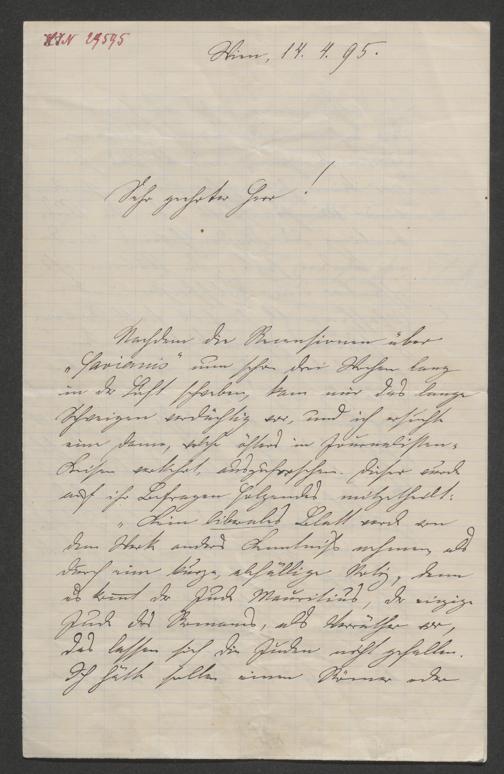 HIN 29595
Wien, 14. 4. 95.
Sehr geehrter Herr!
Nachdem die Recensionen über
„Gavianus“ nun schon drei Wochen lang
in der Luft schweben, kam mir das lange
Schweigen verdächtig vor, und ich ersuchte
eine Dame, welche öfters in Journalisten-
kreisen verkehrt, auszuforschen. Dieser wurde
auf ihr Befragen Folgendes mitgetheilt:
„Kein liberales Blatt werde von
dem Werk anders Kenntniß nehmen, als
durch eine kurze, abfällige Notiz, denn
es kommt der Jude Mauritius, der einzige
Jude des Romans, als Verräther vor,
das lassen sich die Juden nicht gefallen.
Ich hätte sollen einen Römer oder